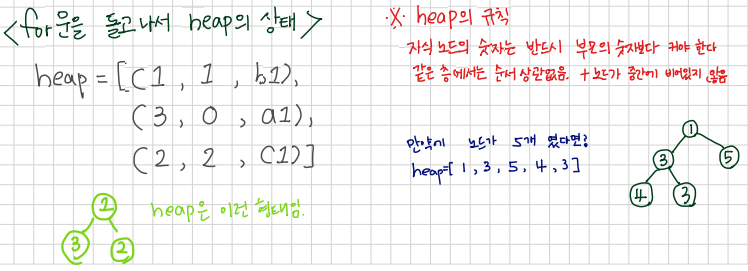 <for문을 돌고나서 heap의 상태>
heap = [(1, 1, b1),
(3, 0, a1),
(2, 2, c1)]
1
3
2
heap은 이런 형태임.
※ heap의 규칙
자식 노드의 숫자는 반드시 부모의 숫자보다 커야 한다
같은 층에서는 순서 상관없음. + 노드가 중간에 비어있지 않음
만약에 노드가 5개 였다면?
heap=[ 1, 3, 5, 4, 3 ]
1
3
5
4
3